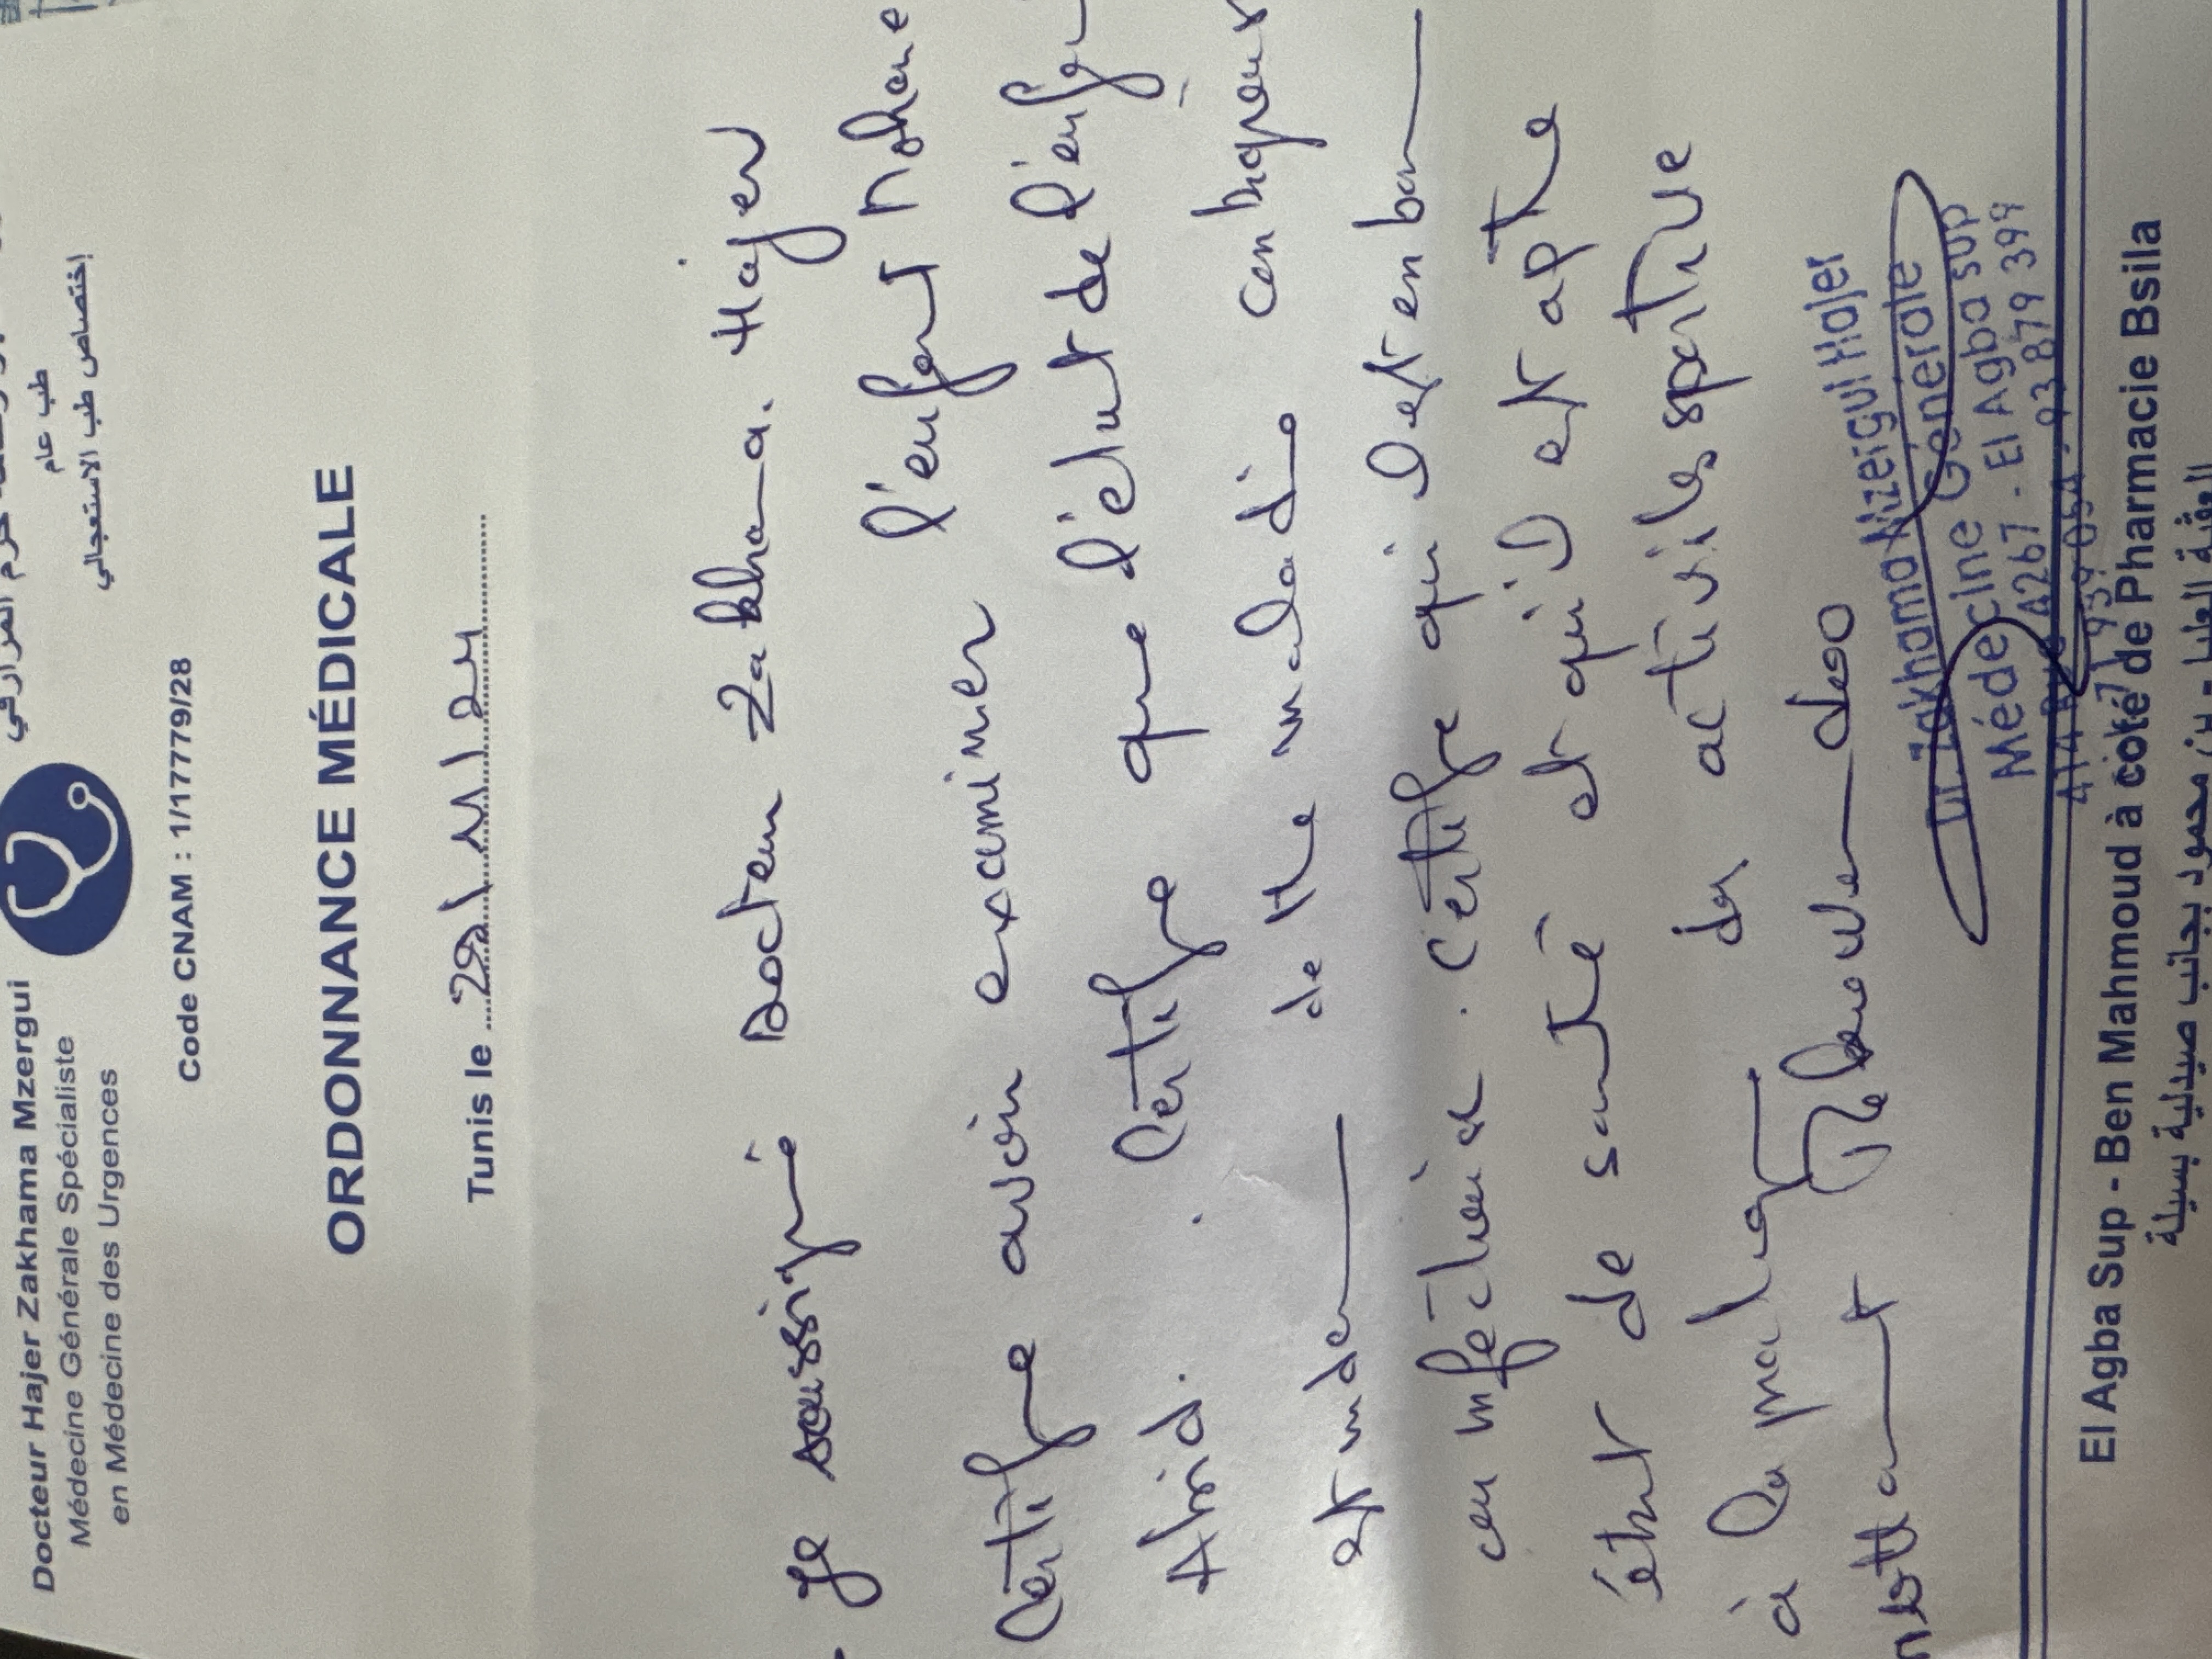 Docteur Hajer Zakhama Mzergui
Médecine Générale Spécialiste
en Médecine des Urgences
طب عام
إختصاص طب الاستعجالي
Code CNAM : 1/17779/28
ORDONNANCE MÉDICALE
Tunis le 29/11/24
Je soussigné Docteur Zakhama. Hajer
Certifie avoir examiner l'enfant Mohame
Abid. Certifie que l'état de l'enfan
de tte maladie contagieus
ou infectieuse. Certifie qui l est en bon
état de santé et qu'il est apte
à la pratique des activités sportive
Dr. Zakhama Mzergui Hajer
Médecine Générale
4267 - El Agba sup
93 879 399
El Agba Sup - Ben Mahmoud à coté de Pharmacie Bsila
العقبة العليا - بن محمود بجانب صيدلية بسيلة